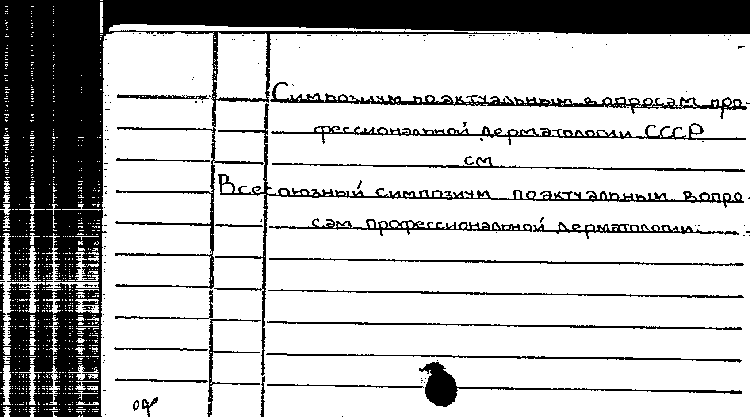 Симпозиум по актуальным вопросам про-
фессиональной дерматологии СССР
см
Всесоюзный симпозиум по актуальным вопро-
сам профессиональной дерматологии.